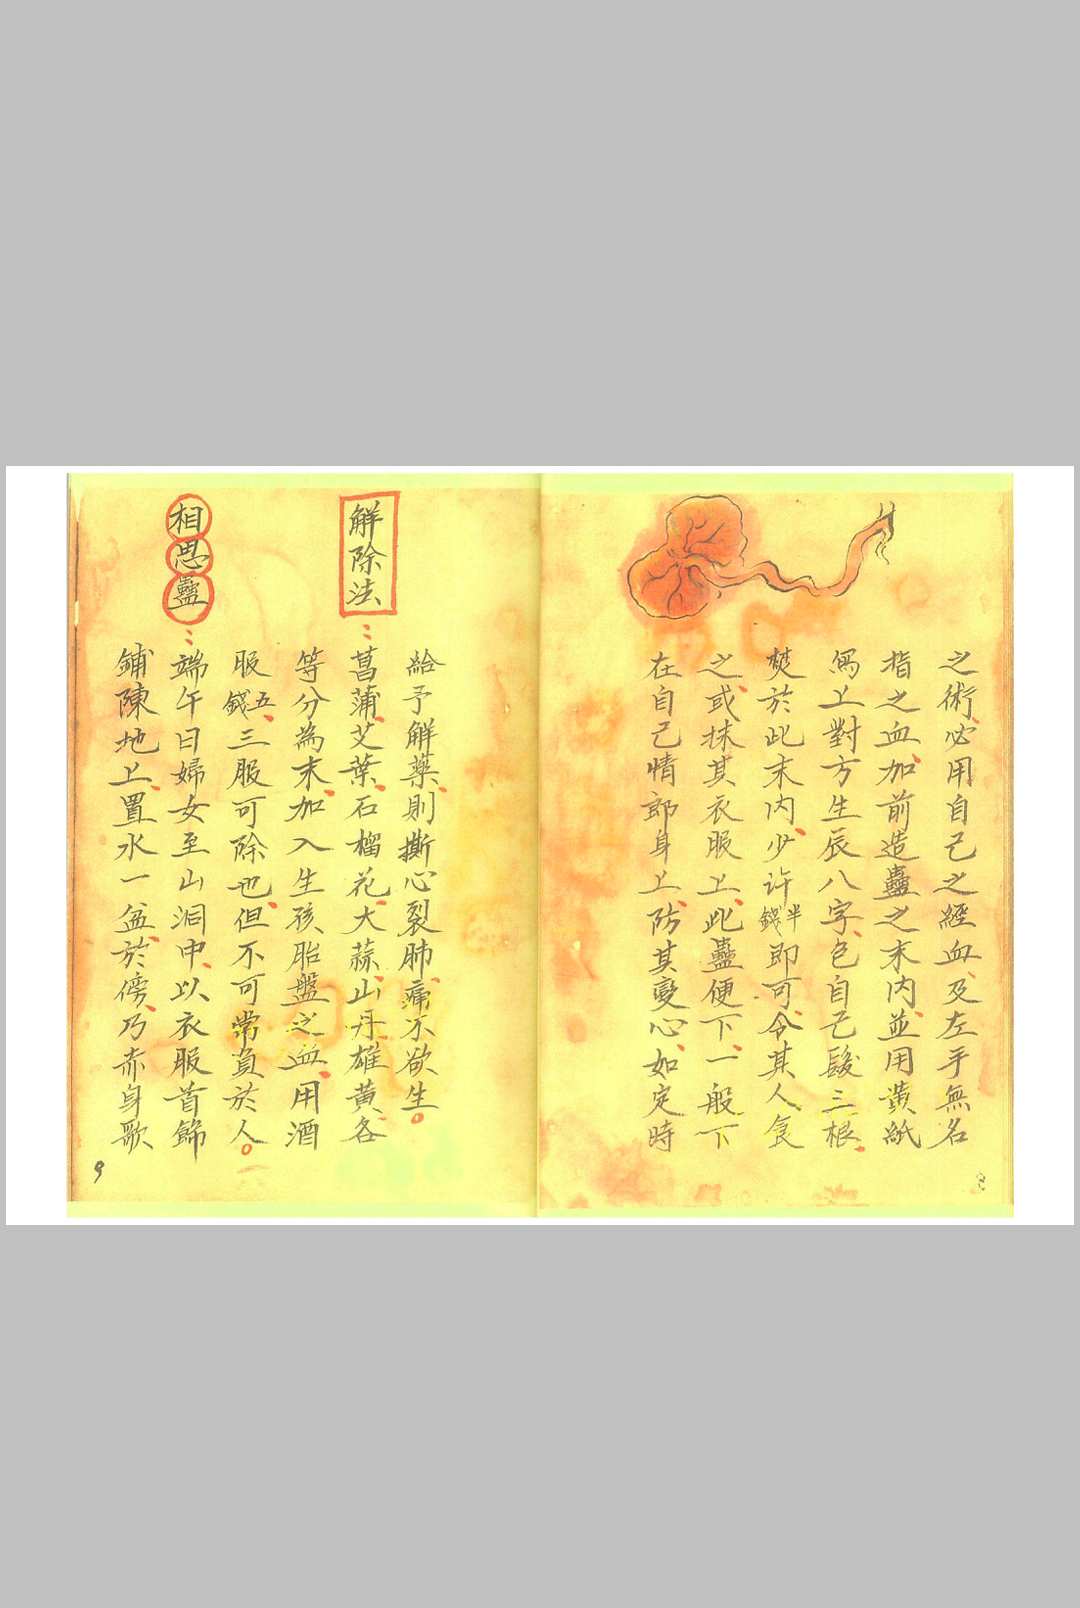 之術必用自己之經血及左手無名
指之血加前造蠱之末內並用黃紙
寫上對方生辰八字包自己髮三根
焚於此末內少许半錢即可令其人食
之或抹其衣服上此蠱便下一般下
在自己情郎身上防其變心如定時
8
給予解藥則撕心裂肺痛不欲生。
解除法：菖蒲艾葉石榴花大蒜山丹雄黃各
等分為末加入生孩胎盤之血用酒
服五錢三服可除也但不可常負於人。
相思蠱：端午日婦女至山洞中以衣服首飾
鋪陳地上置水一盆於傍乃赤身歌
9